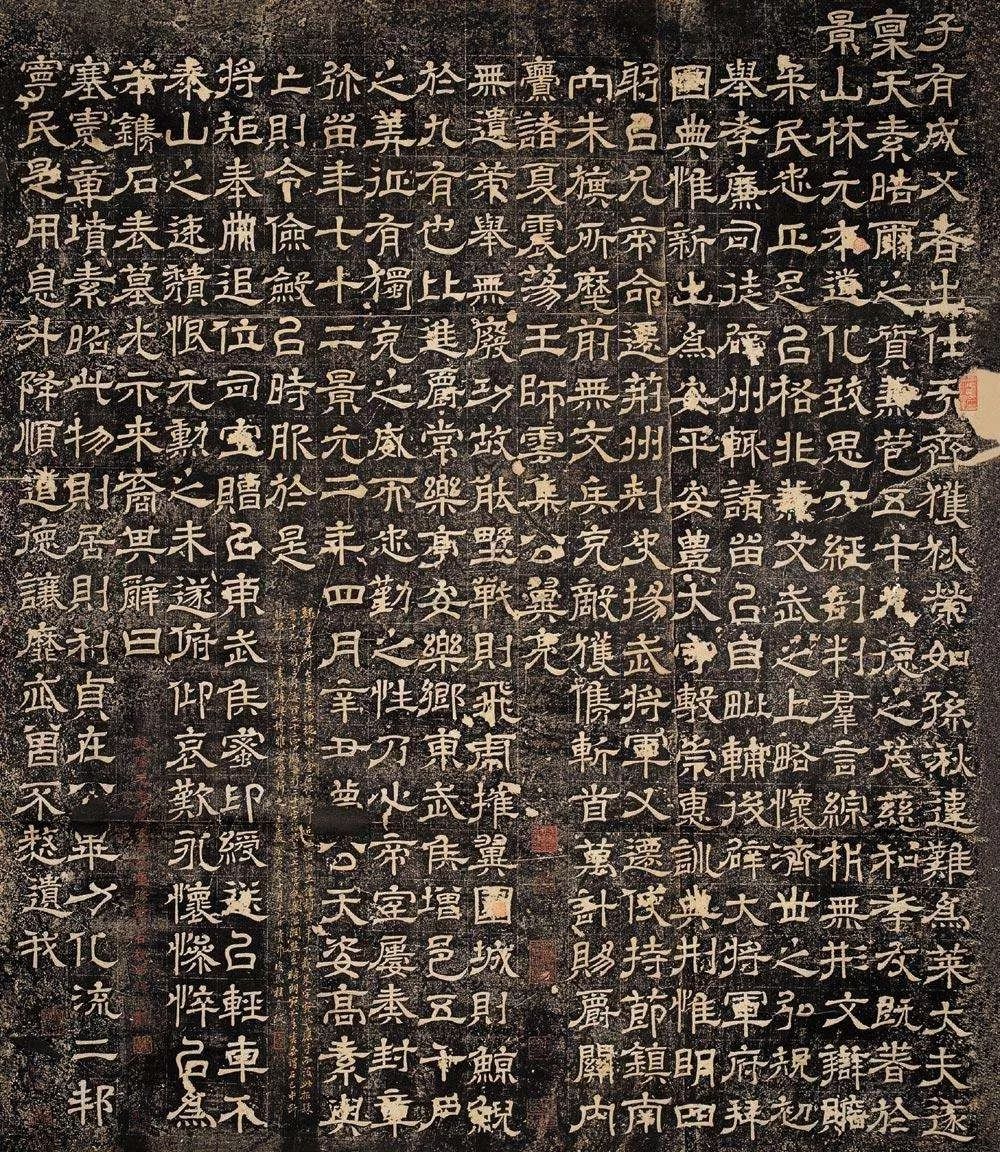 子有成父者出仕于齊獲狄榮如孫湫違難爲萊大夫遂
稟天素皓爾之質兼苞五才九德之茂慈和孝友既著於
景山林元本道化致思六經剖判羣言綜析無形文辯贍
民忠正足以格非兼文武之上略懷濟世之弘規初
舉孝廉司徒辟州輒請留以自毗輔後辟大將軍府拜
國典惟新出爲安平安豐太守敷崇惠訓典刑惟明四
躬以允帝命遷荊州刺史揚武將軍又遷使持節鎮南
內朱旗所麾前無交兵克敵獲儁斬首萬計賜爵關內
釁諸夏震蕩王師雲集公翼亮
無遺策舉無廢功故能野戰則飛虎摧翼圍城則鯨鯢
於九有也比進爵常樂亭安樂鄉東武侯增邑五千戶
之美征有獨克之威而忠勤之性乃心帝室屢奏封章
弥留年七十二景元二年四月辛丑薨公天姿高素與
亡則令儉斂以時服於是
將矩奉冊追位司空贈以東武侯蜜印綬送以輕車不
泰山之速穨恨元勳之未遂俯仰哀歎永懷慘悴以爲
鐫石表墓光示来裔其辭曰
塞憲章墳素昭此物則居則利貞在公化流二邦
寧民是用息升降順道德讓靡忒曾不慭遺我